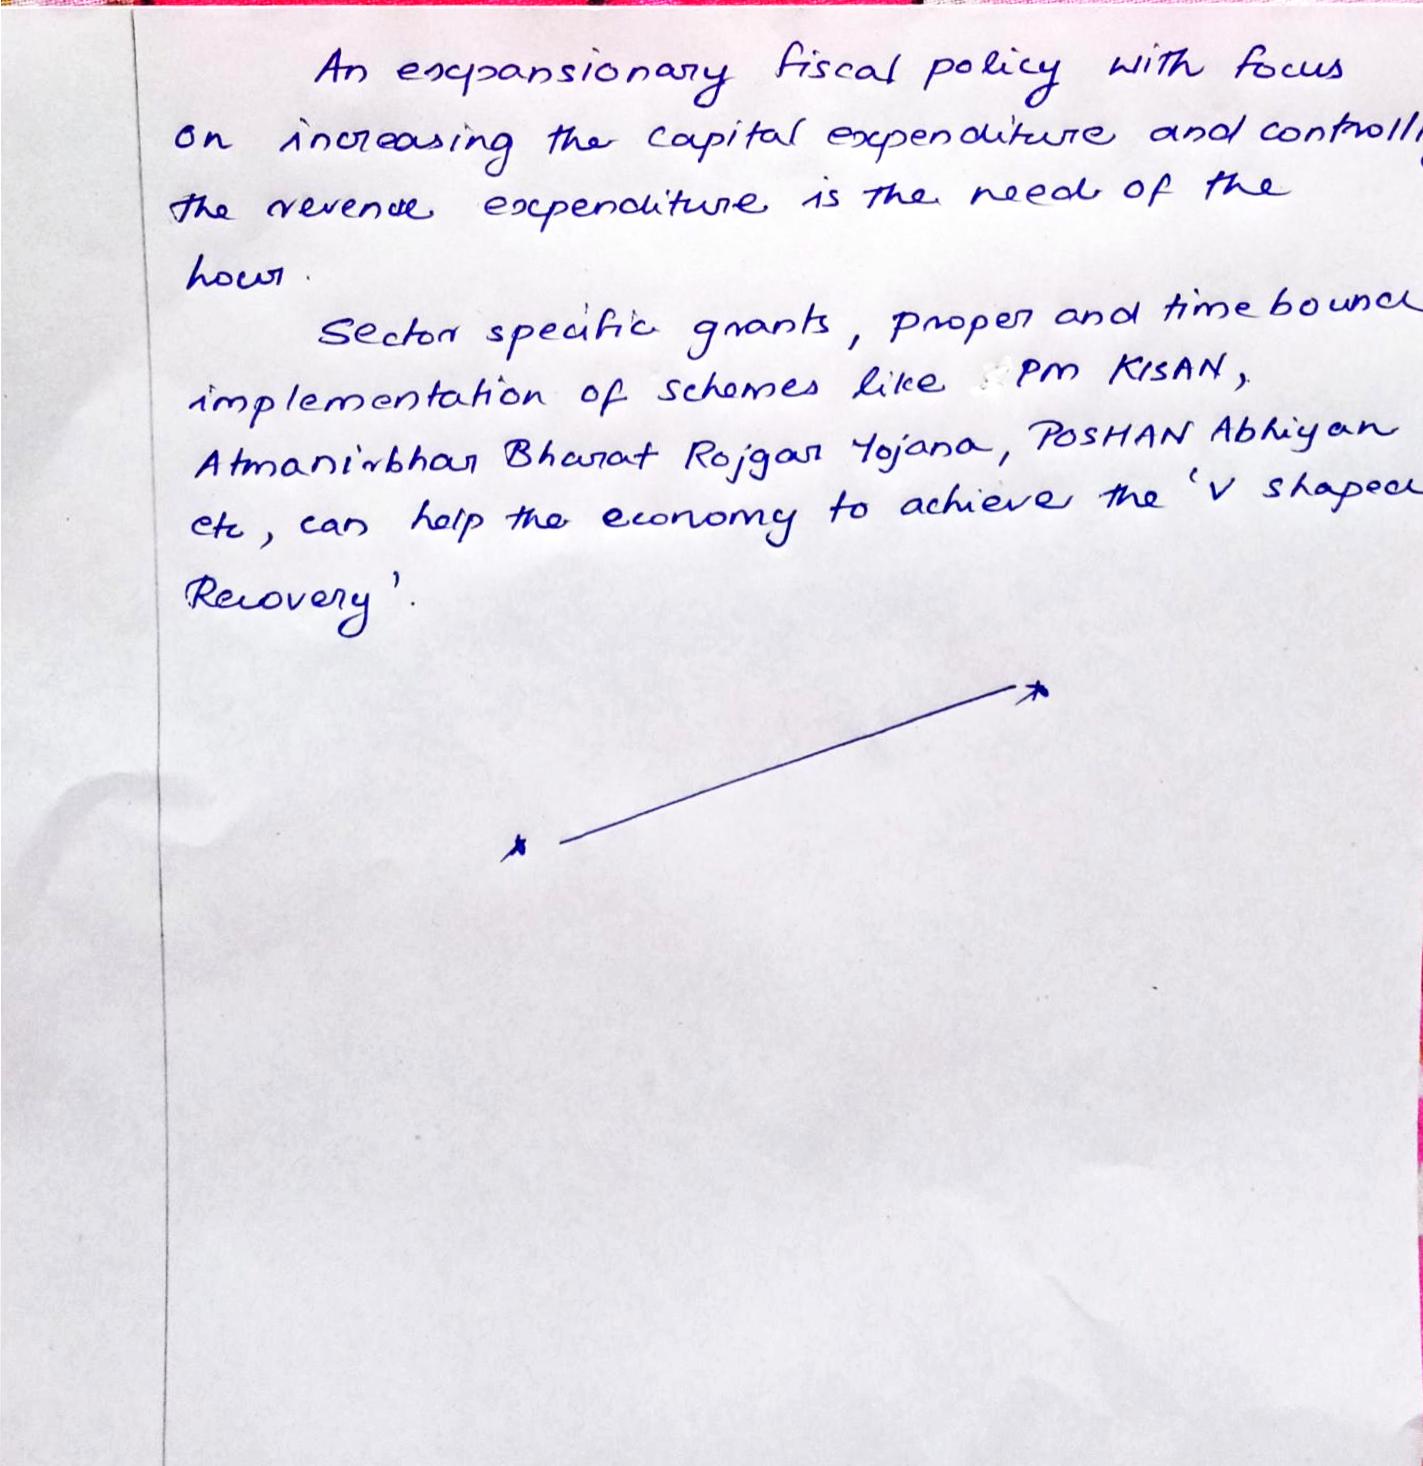 An expansionary fiscal policy with focus
on increasing the capital expenditure and controlli
the revenue expenditure is the need of the
hour.
Sector specific grants, proper and time bound
implementation of schemes like PM KISAN,
Atmanirbhar Bharat Rojgar Yojana, POSHAN Abhiyan
etc, can help the economy to achieve the 'V shaped
Recovery'.